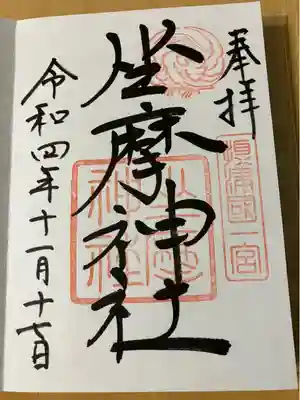 奉拝
摂津國一宮
坐摩神社
令和四年十一月十七日